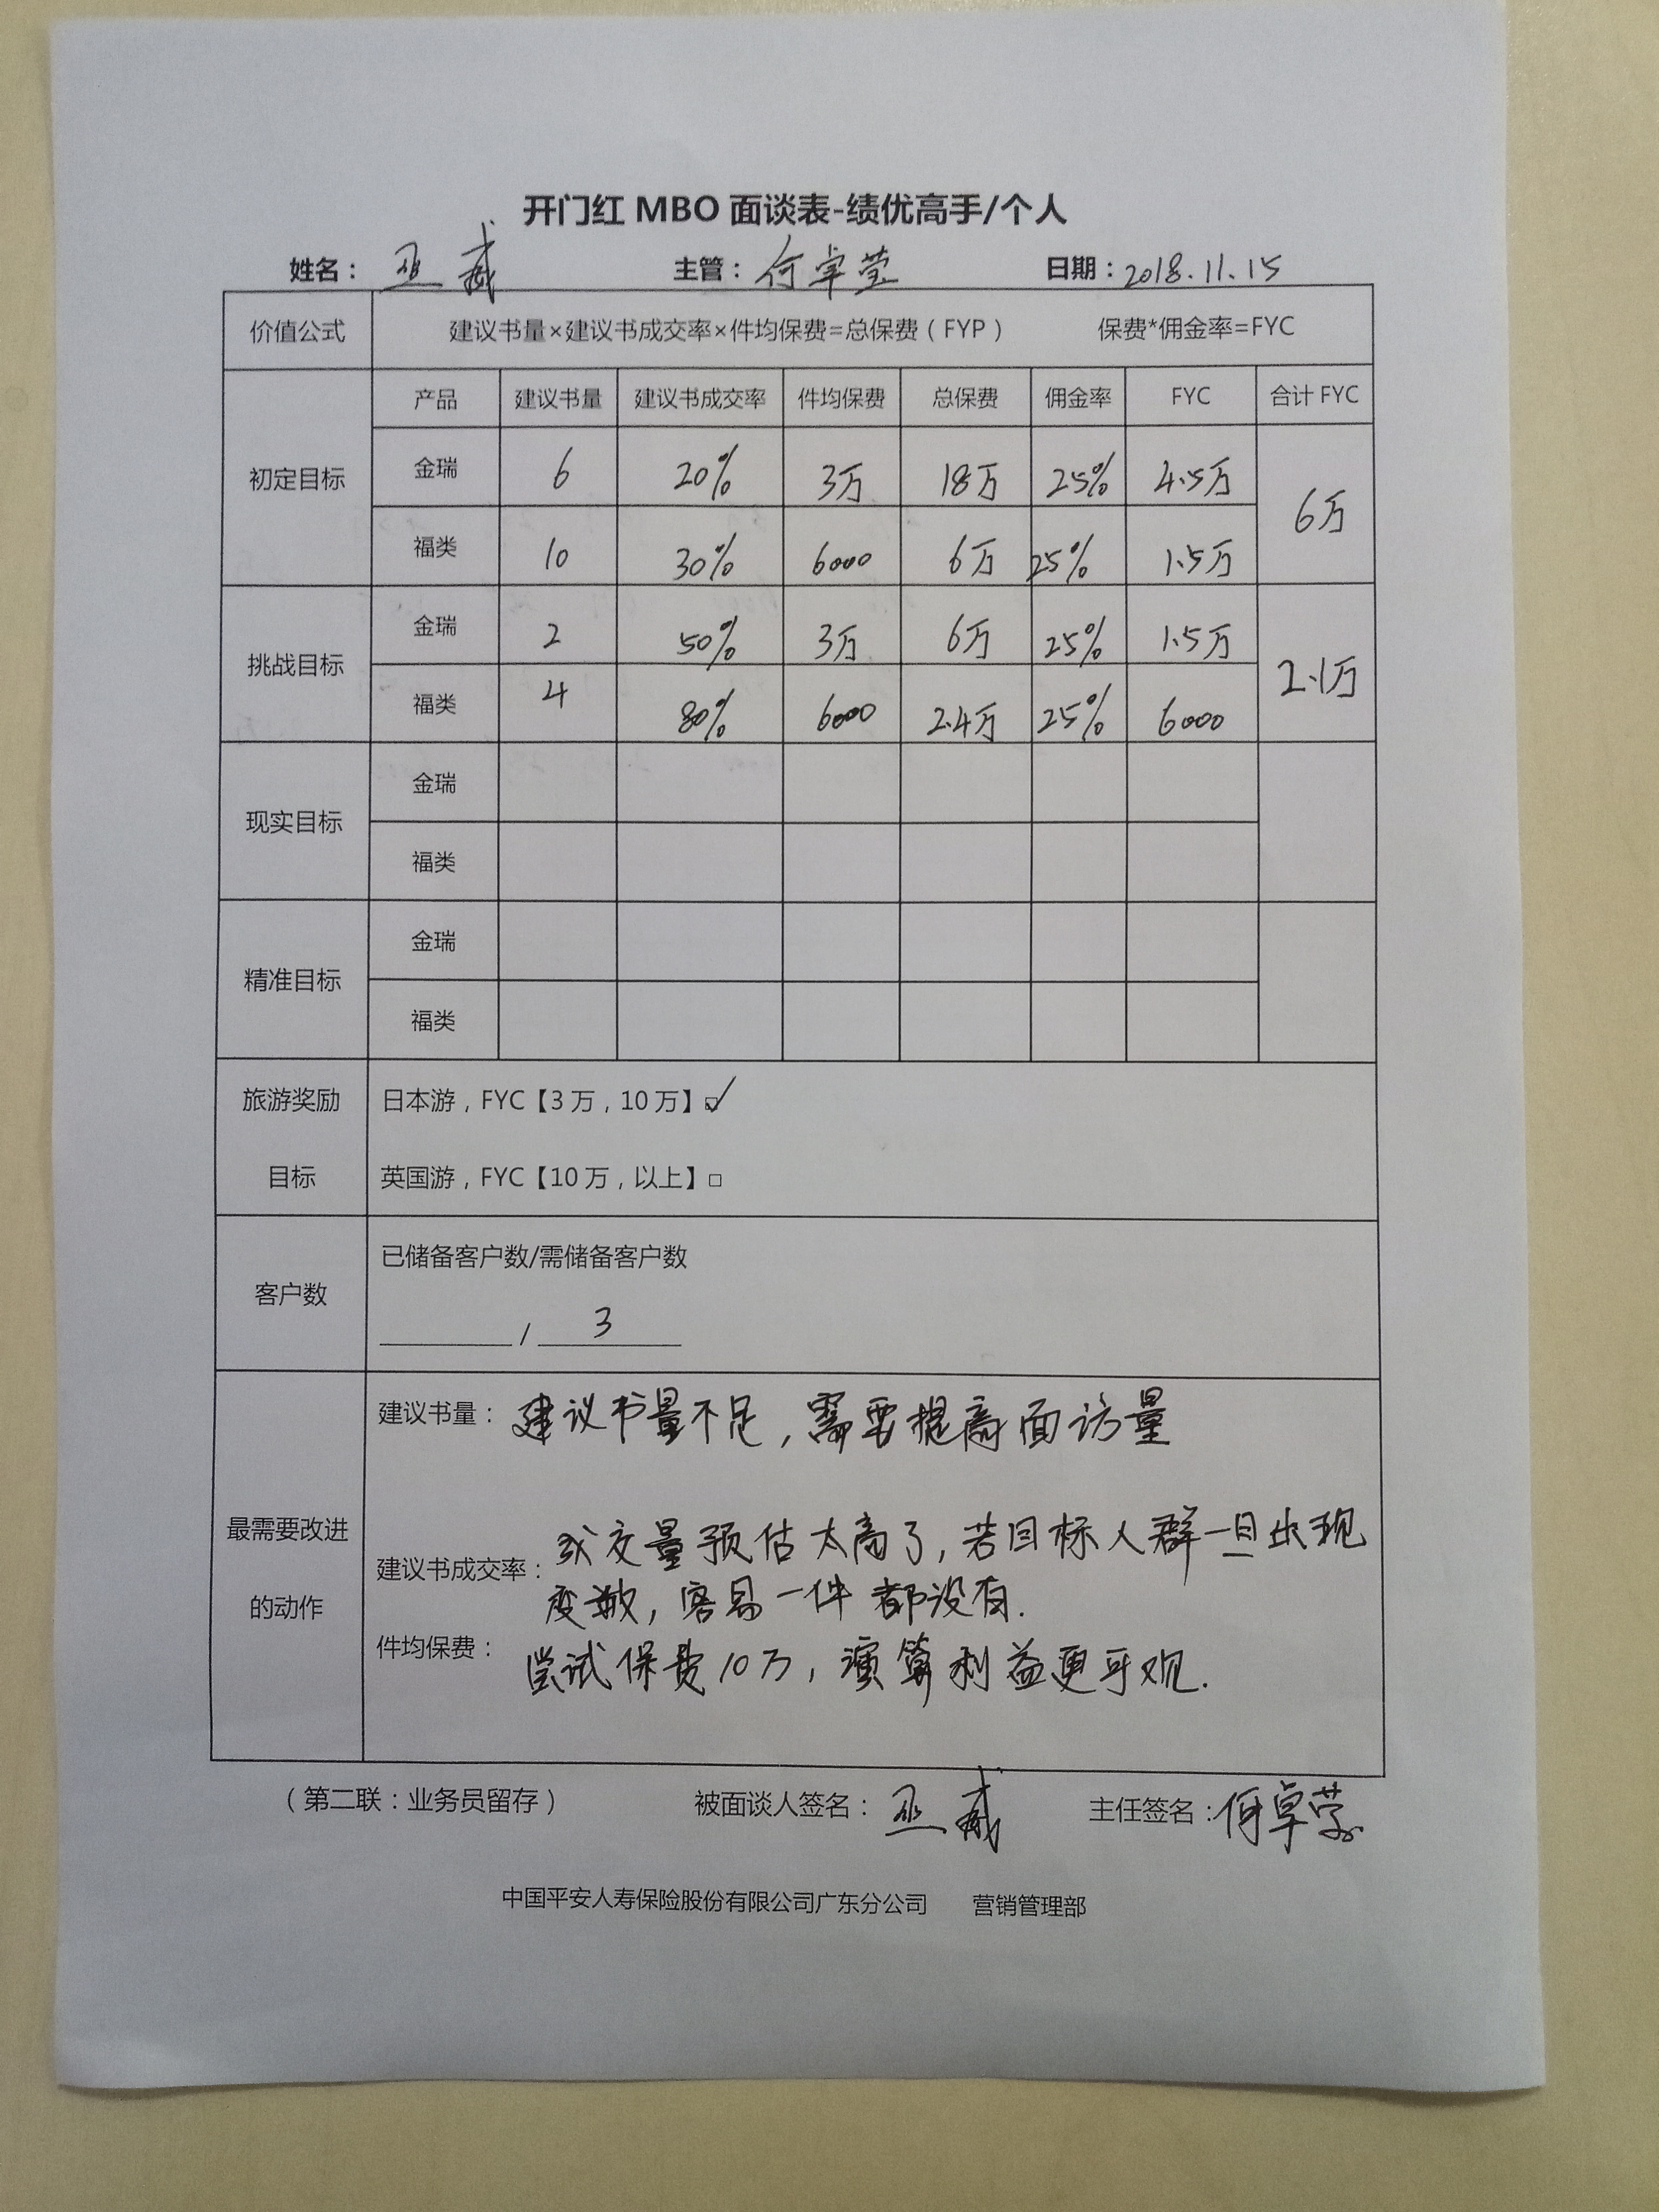 开门红 MBO 面谈表-绩优高手/个人
姓名： 巫威 主管： 何卓莹 日期：2018.11.15
价值公式 建议书量×建议书成交率×件均保费=总保费（FYP） 保费*佣金率=FYC
产品 建议书量 建议书成交率 件均保费 总保费 佣金率 FYC 合计 FYC
初定目标 金瑞 6 20% 3万 18万 25% 4.5万 6万
福类 10 30% 6000 6万 25% 1.5万
挑战目标 金瑞 2 50% 3万 6万 25% 1.5万 2.1万
福类 4 80% 6000 2.4万 25% 6000
现实目标 金瑞
福类
精准目标 金瑞
福类
旅游奖励 日本游，FYC【3 万，10 万】☑
目标 英国游，FYC【10 万，以上】□
客户数 已储备客户数/需储备客户数
/ 3
最需要改进的动作
建议书量： 建议书量不足，需要提高面访量
建议书成交率： 成交量预估太高了，若目标人群一旦出现
变数，容易一件都没有.
件均保费： 尝试保费10万，演算利益更可观.
（第二联：业务员留存） 被面谈人签名： 巫威 主任签名：何卓莹
中国平安人寿保险股份有限公司广东分公司 营销管理部